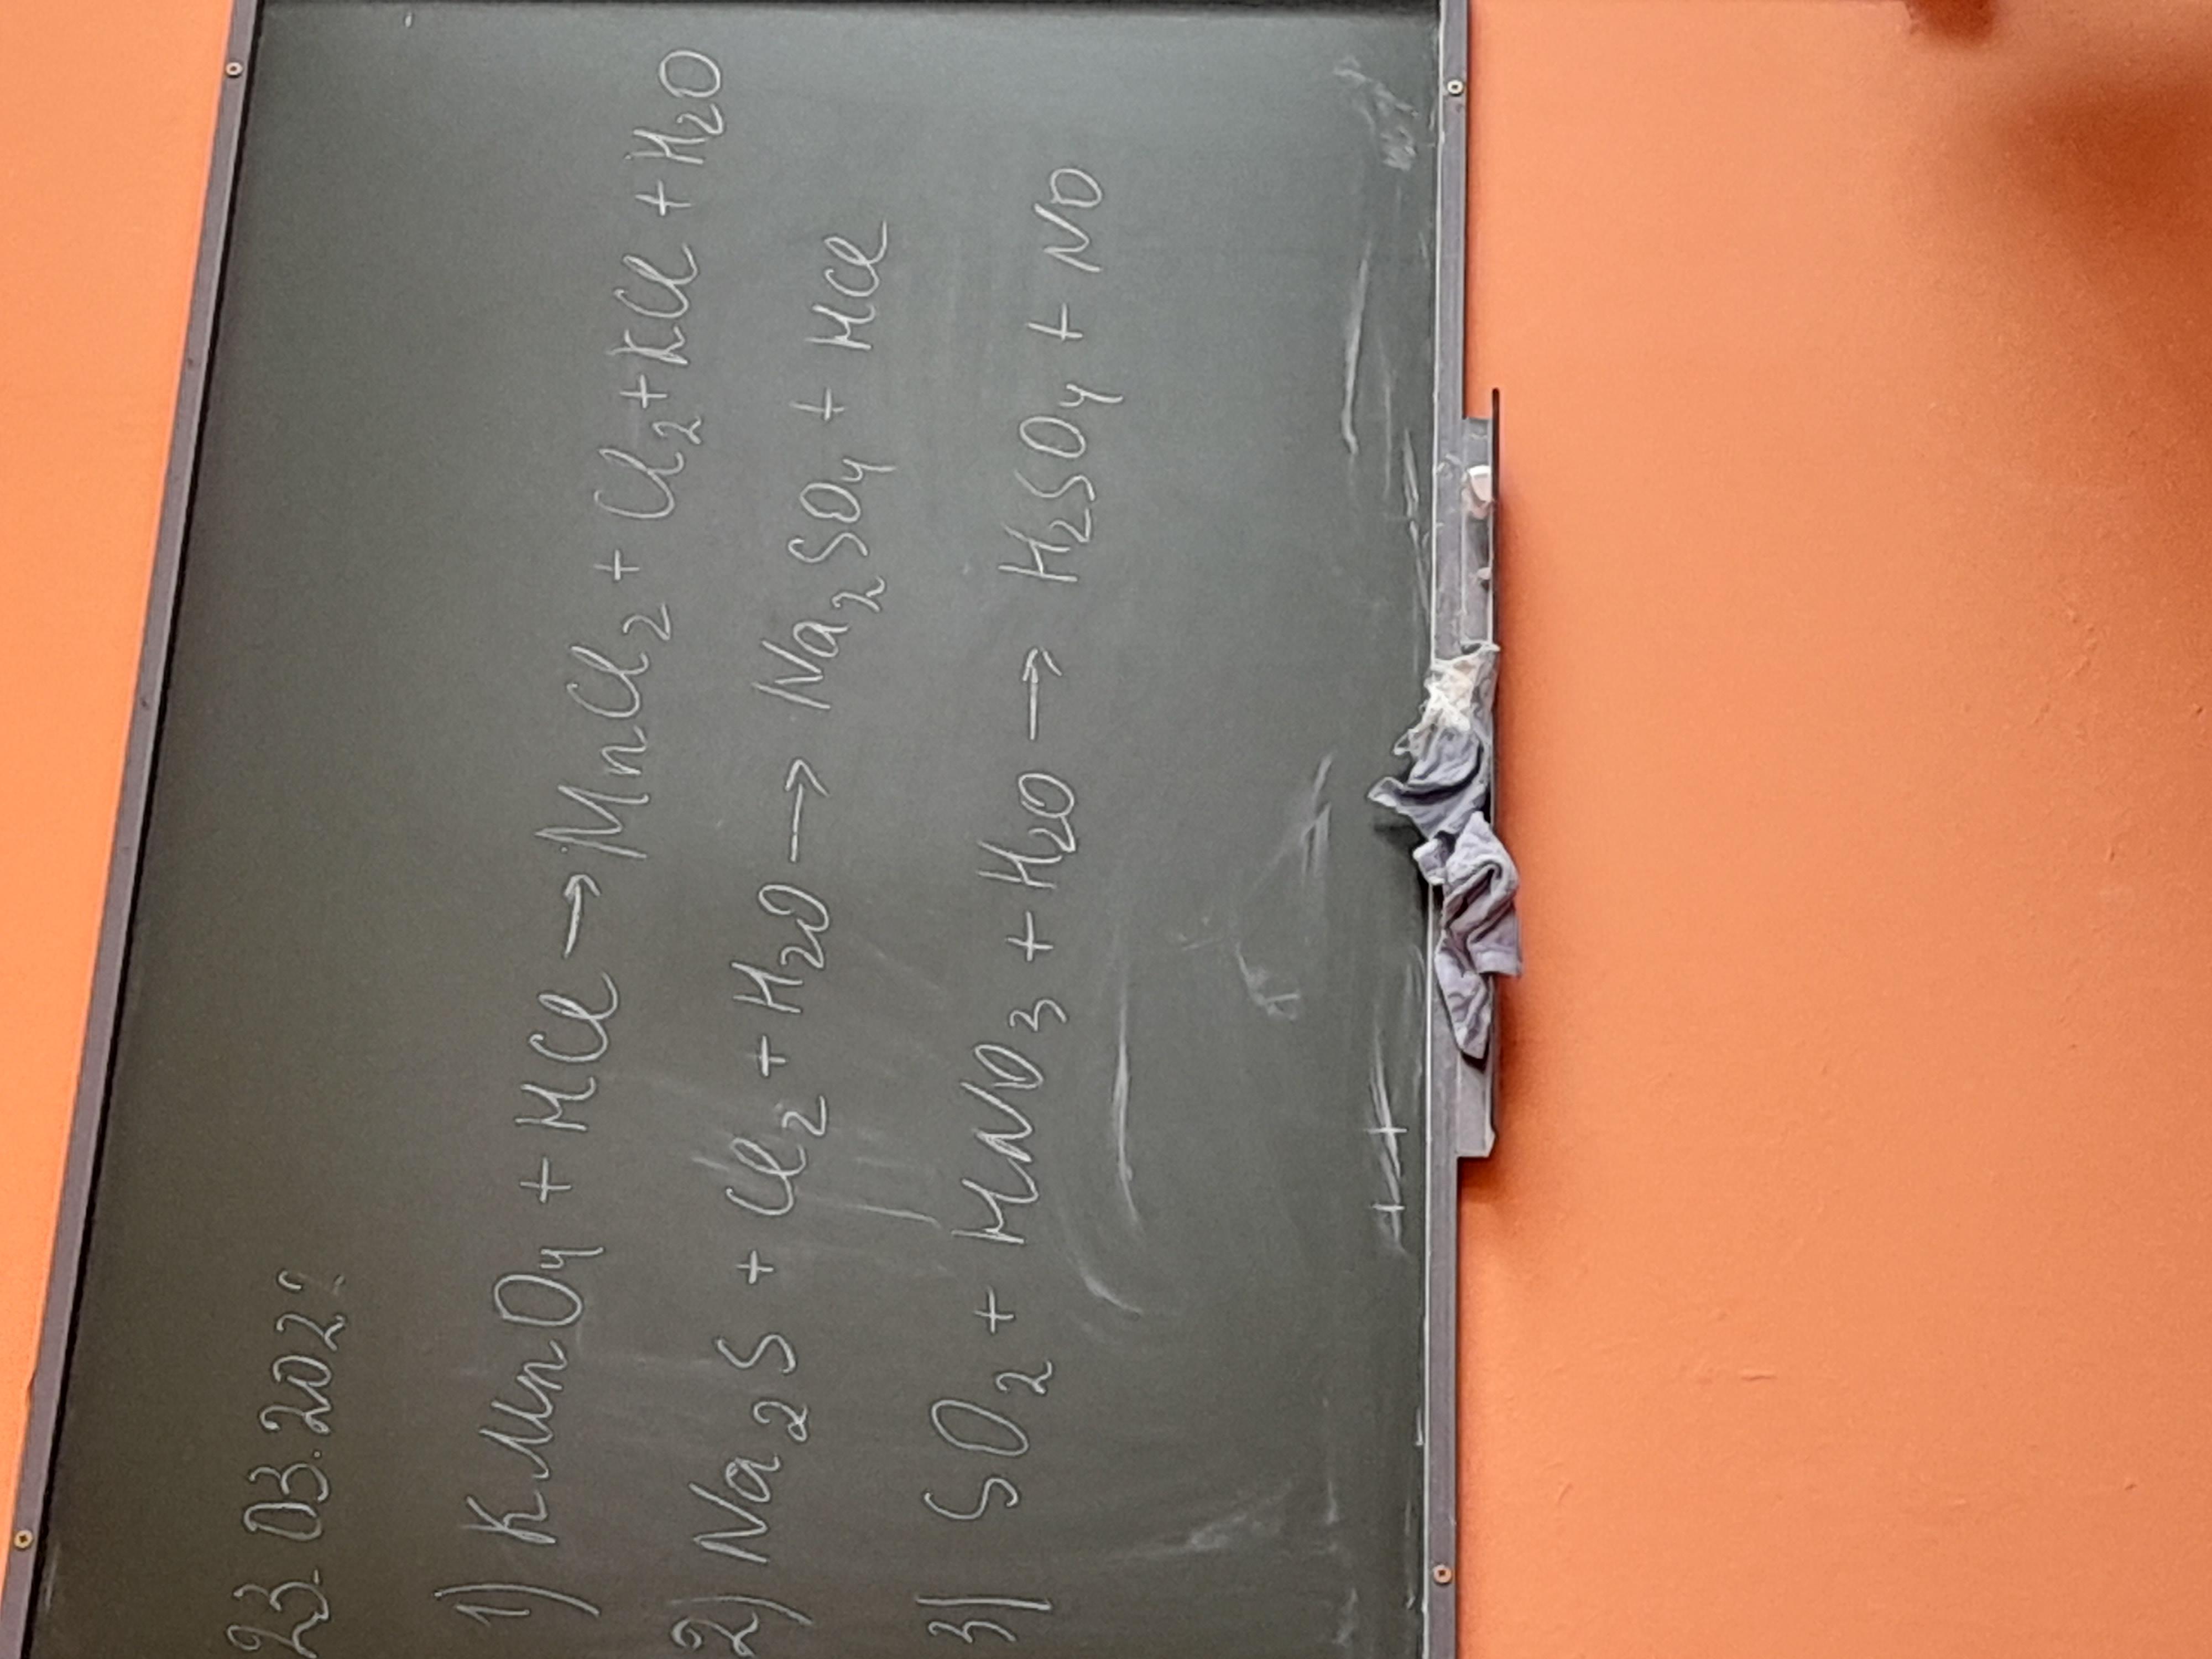 23.03.2022
1) KMnO₄ + HCl → MnCl₂ + Cl₂ + KCl + H₂O
2) Na₂S + Cl₂ + H₂O → Na₂SO₄ + HCl
3) SO₂ + HNO₃ + H₂O → H₂SO₄ + NO